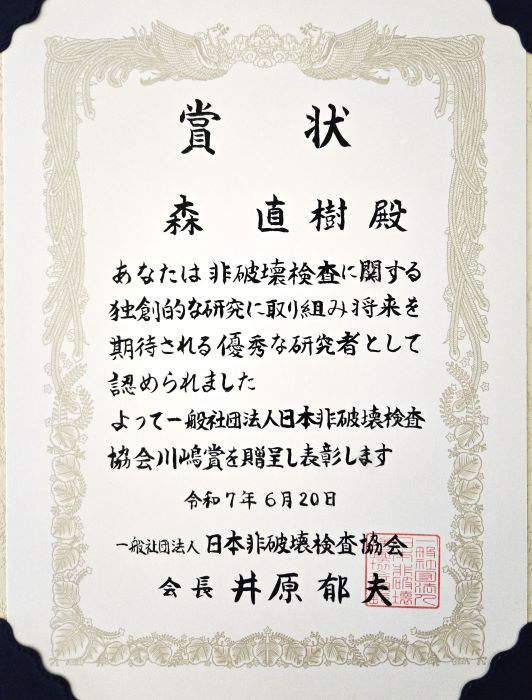 賞状
森 直樹 殿
あなたは非破壊検査に関する
独創的な研究に取り組み将来を
期待される優秀な研究者として
認められました
よって一般社団法人日本非破壊検査
協会川嶋賞を贈呈し表彰します
令和7年6月20日
一般社団法人 日本非破壊検査協会
会長 井原郁夫